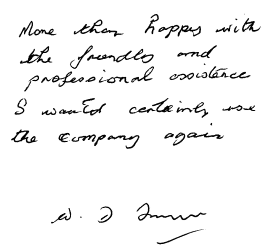 More than happy with
the friendly and
professional assistance
I would certainly use
the company again
W. D